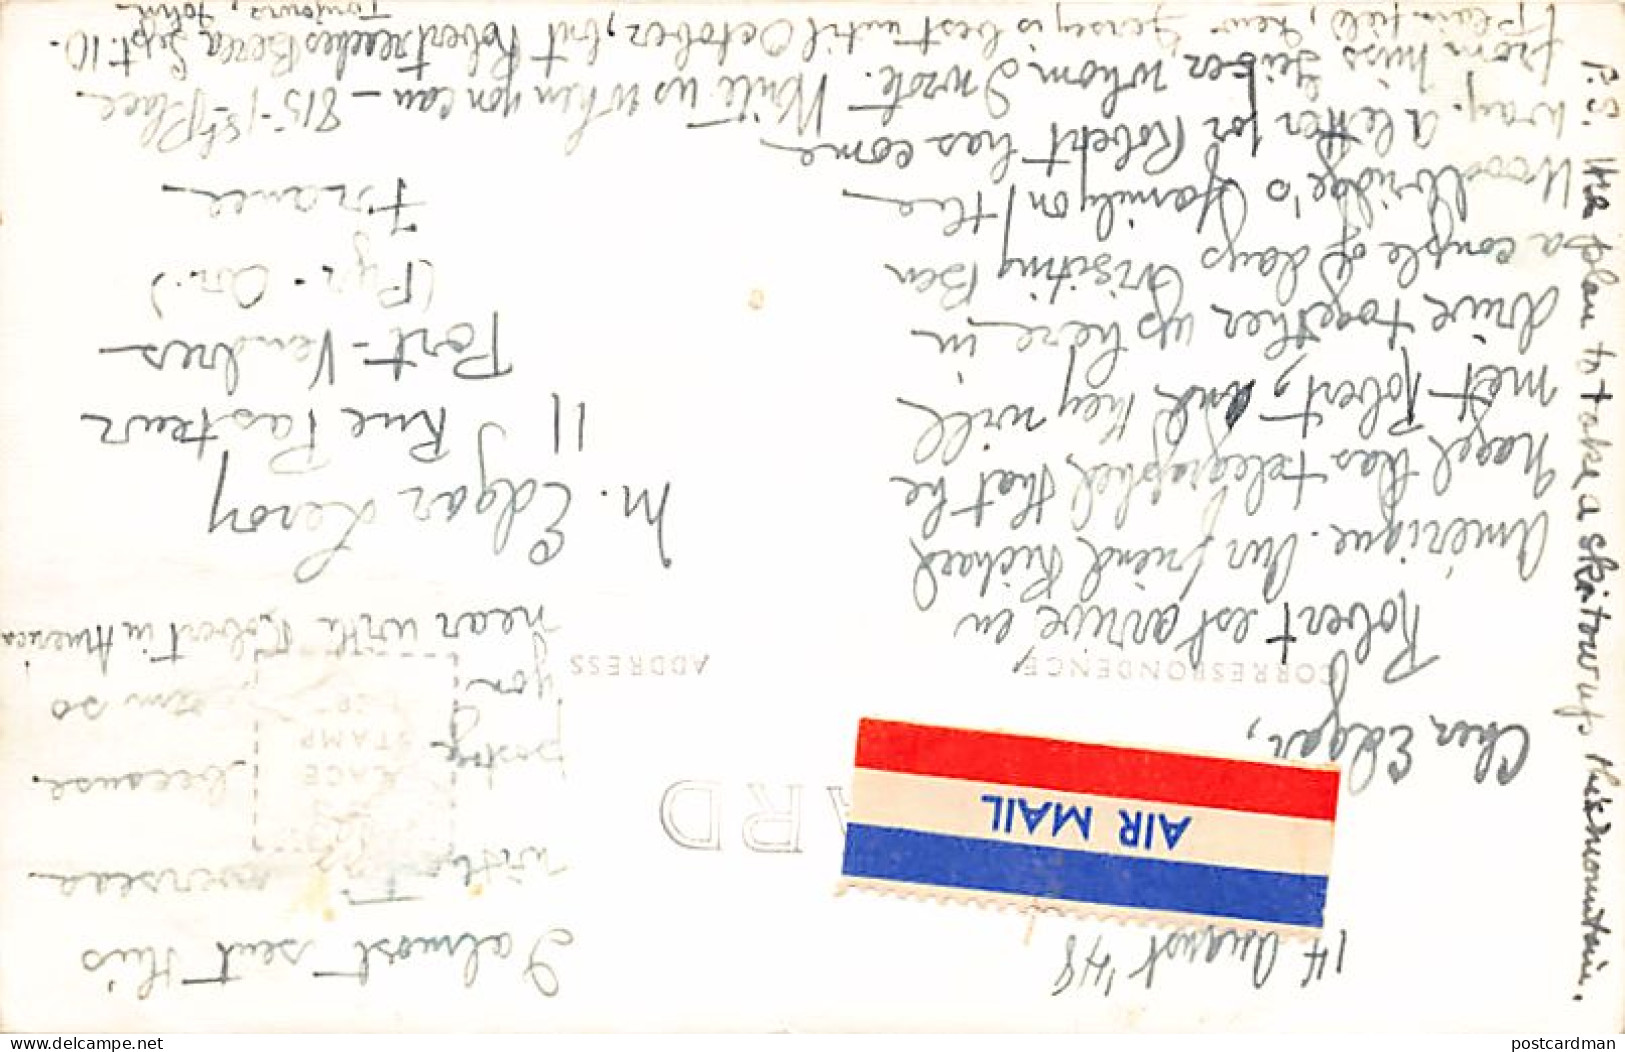 14 August '48
AIR MAIL
CARD
Cher Edgar,
CORRESPONDENCE
Robert est arrive en
Amérique. Our friend Richard
Nagel has telegraphed that he
met Robert, and they will
drive together up here in
a couple of days visiting Ben
Woodbridge's family on the
way. A letter for Robert has come
from Miss Geiger whom I wrote. Write us when you can – 815 – 1st Place
Plainfield, New Jersey is best until October, but Robert reaches Berea Sept. 10.
Toujours, John
P.S. We plan to take a ski-tow up this mountain.
I almost sent this
without overseas
postage because
PLACE
STAMP
HERE
I am so
you
near with Robert in America
ADDRESS
M. Edgar Leroy
11 Rue Pasteur
Port-Vendres
(Pyr-Or.)
France
Visit Delcampe.net
postcardman